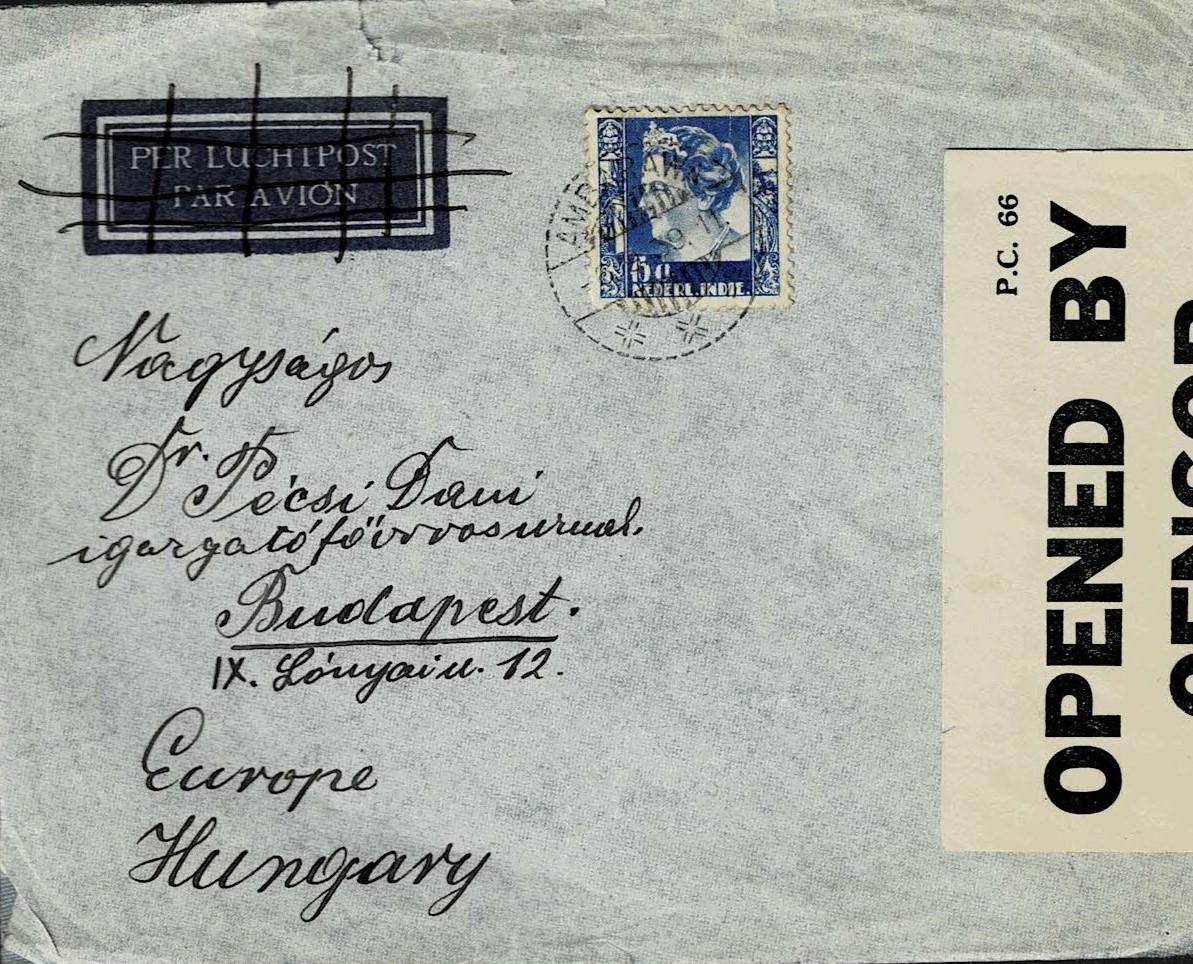 PER LUCHTPOST
PAR AVION
15 c
NEDERL. INDIE.
AMBARAWA
39. 11.
Nagyságos
Dr. Pécsi Dani
igazgató főorvosúrnak.
Budapest.
IX. Lónyai u. 12.
Europe
Hungary
P.C. 66
OPENED BY
CENSOR